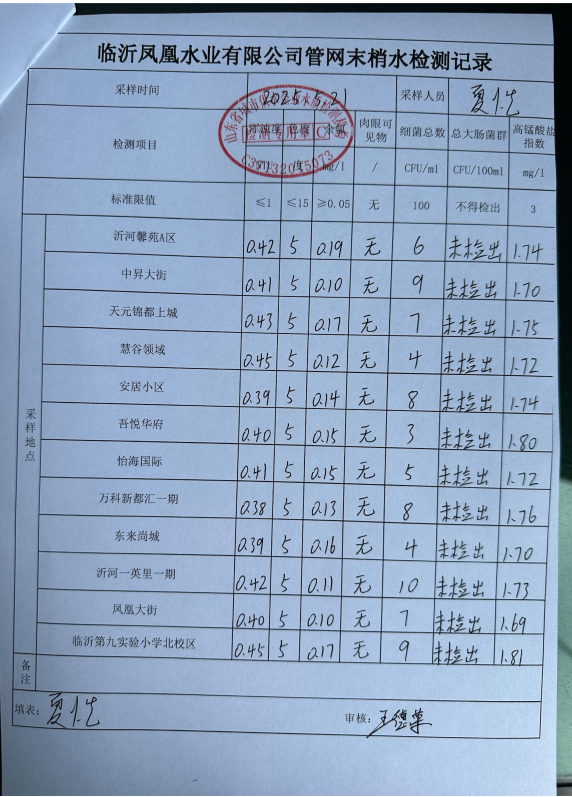 临沂凤凰水业有限公司管网末梢水检测记录
采样时间 2025.5.21 采样人员
检测项目 浑浊度 色度 余氯 肉眼可见物 细菌总数 总大肠菌群 高锰酸盐指数
mg/l / CFU/ml CFU/100ml mg/l
标准限值 ≤1 ≤15 ≥0.05 无 100 不得检出 3
采样地点
沂河馨苑A区 0.42 5 0.19 无 6 未检出 1.74
中昇大街 0.41 5 0.10 无 9 未检出 1.70
天元锦都上城 0.43 5 0.17 无 7 未检出 1.75
慧谷领域 0.45 5 0.12 无 4 未检出 1.72
安居小区 0.39 5 0.14 无 8 未检出 1.74
吾悦华府 0.40 5 0.15 无 3 未检出 1.80
怡海国际 0.41 5 0.15 无 5 未检出 1.72
万科新都汇一期 0.38 5 0.13 无 8 未检出 1.76
东来尚城 0.39 5 0.16 无 4 未检出 1.70
沂河一英里一期 0.42 5 0.11 无 10 未检出 1.73
凤凰大街 0.40 5 0.10 无 7 未检出 1.69
临沂第九实验小学北校区 0.45 5 0.17 无 9 未检出 1.81
备注
填表： 审核：